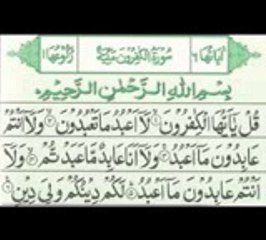 اٰيَاتُهَا ٦ سُوْرَةُ الْكٰفِرُوْنَ مَكِّيَّةٌ رُكُوْعُهَا ١
بِسْمِ اللّٰهِ الرَّحْمٰنِ الرَّحِيْمِ
قُلْ يٰٓاَيُّهَا الْكٰفِرُوْنَ ۙ لَآ اَعْبُدُ مَا تَعْبُدُوْنَ ۙ وَلَآ اَنْتُمْ
عٰبِدُوْنَ مَآ اَعْبُدُ ۚ وَلَآ اَنَا عَابِدٌ مَّا عَبَدْتُّمْ ۙ وَلَآ
اَنْتُمْ عٰبِدُوْنَ مَآ اَعْبُدُ ۭ لَكُمْ دِيْنُكُمْ وَلِيَ دِيْنِ